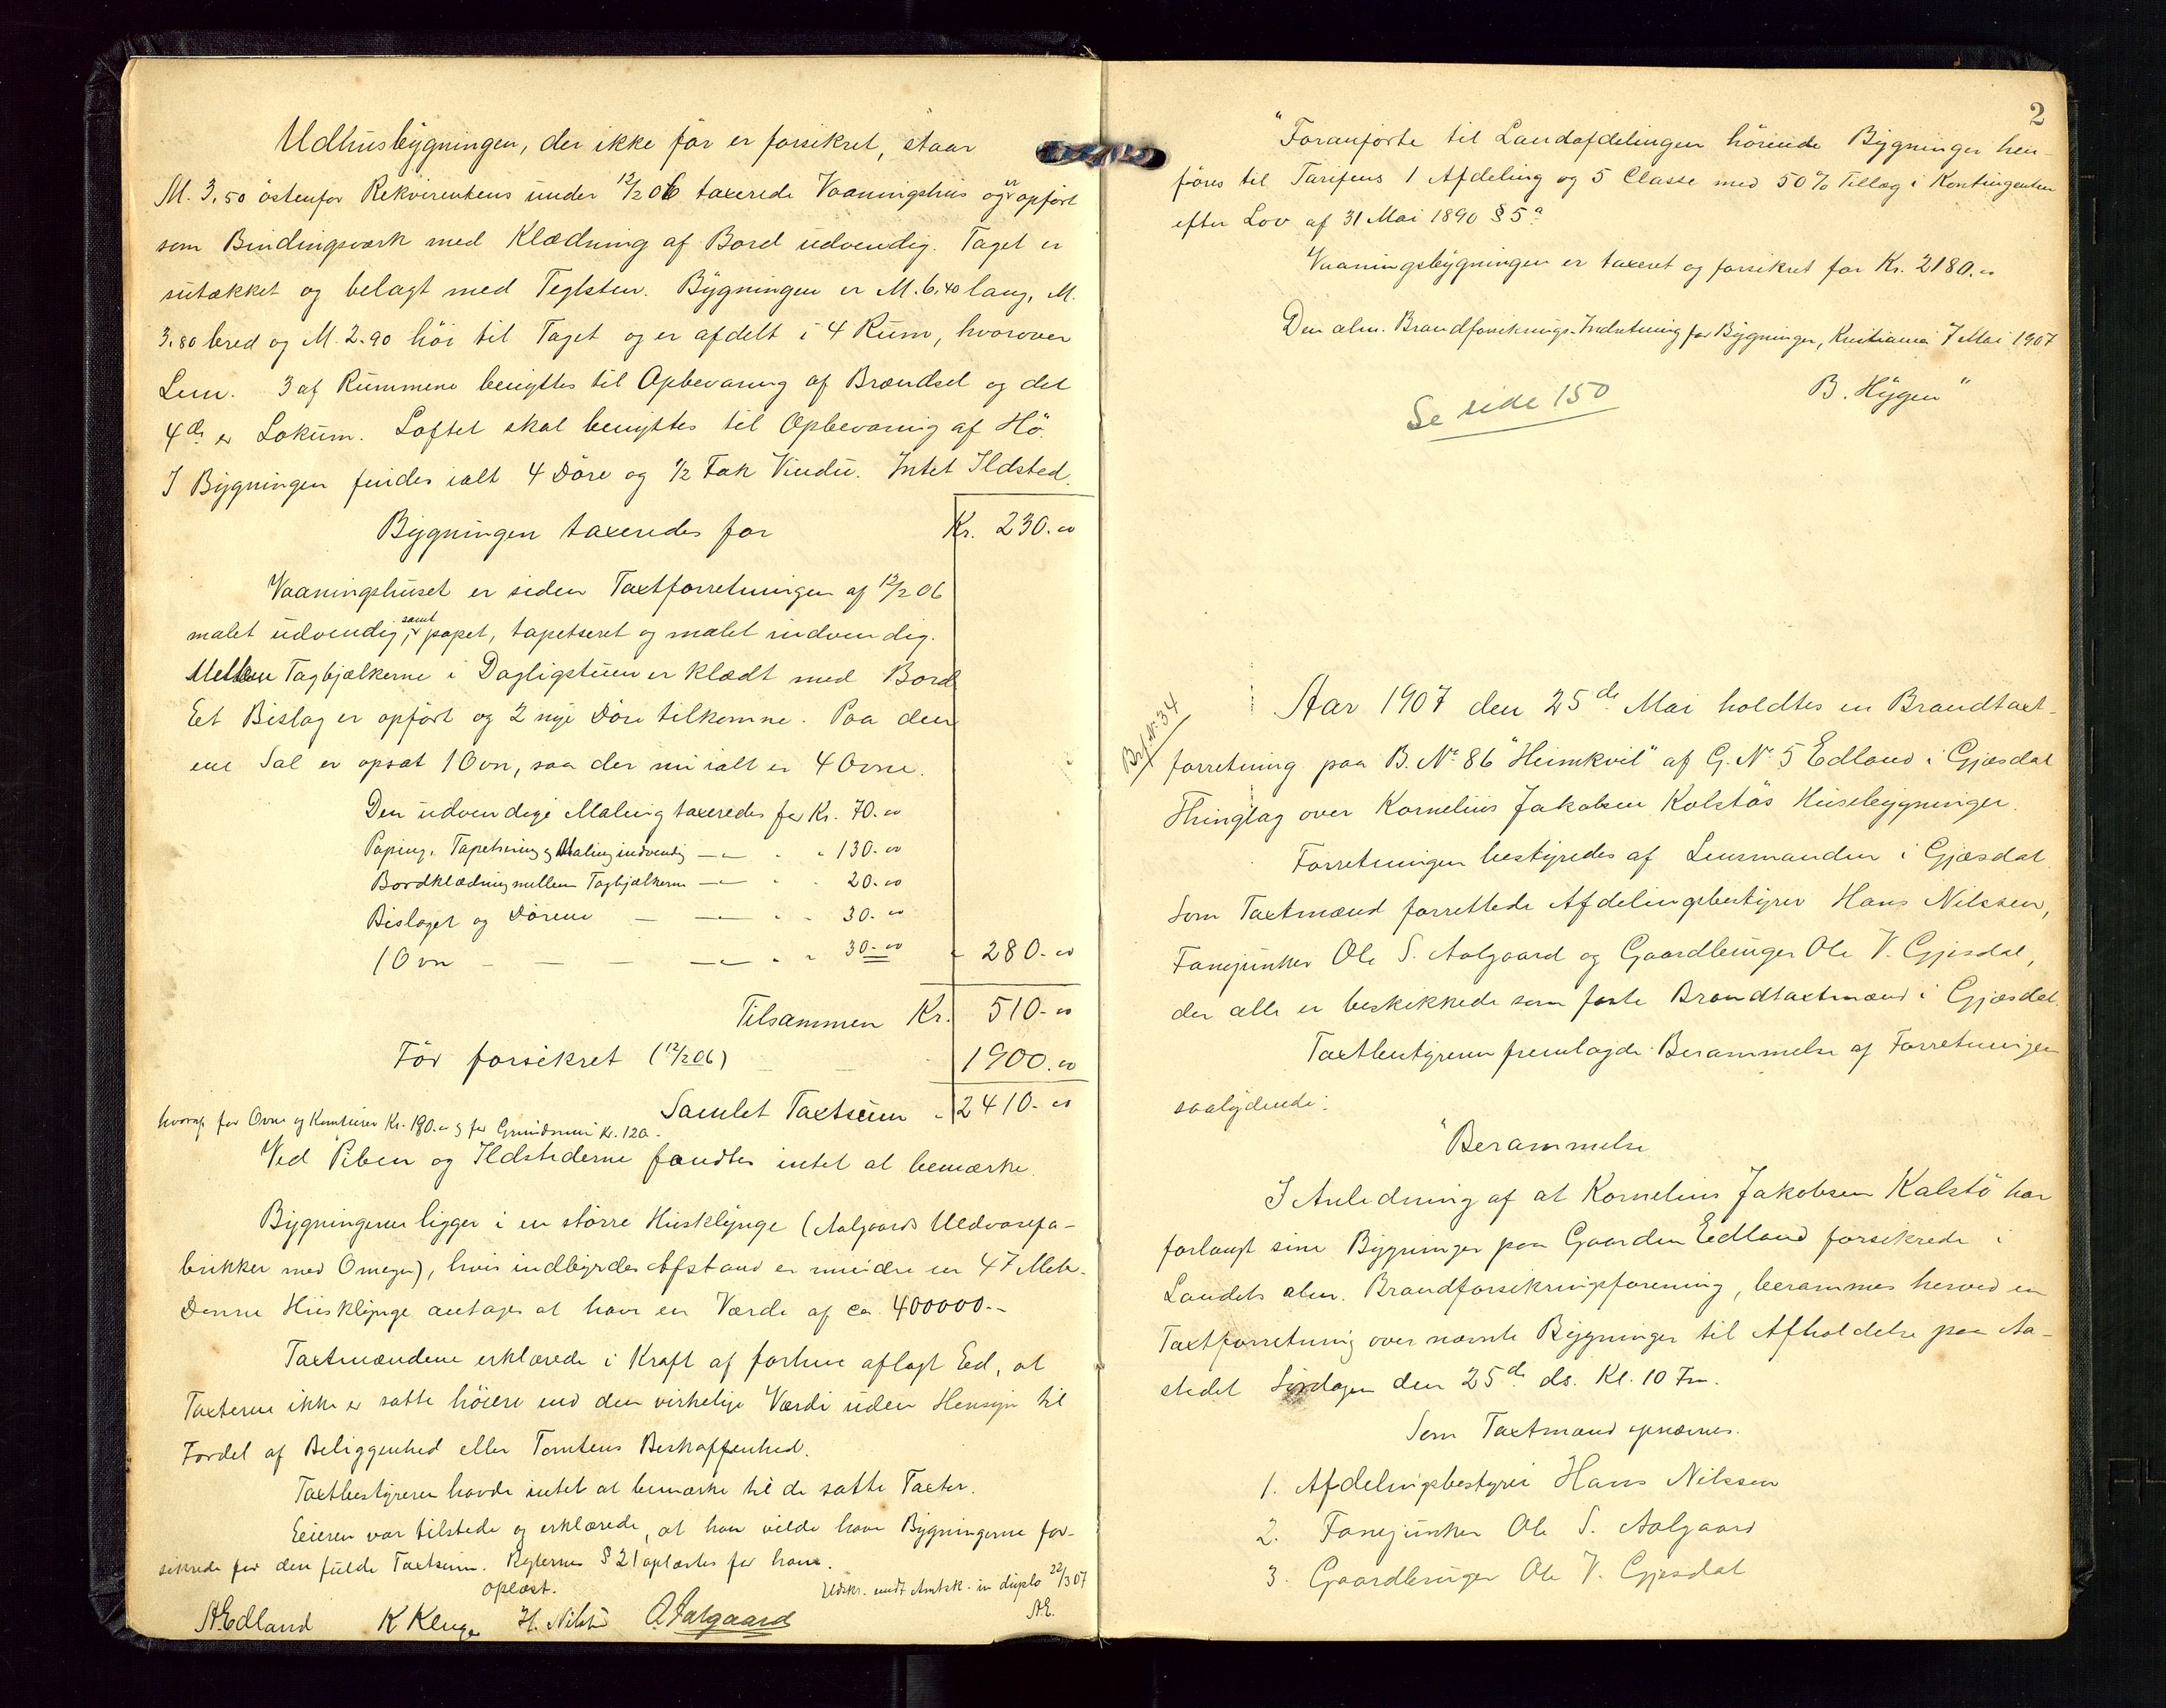 Udhusbygningen, der ikke før er forsikret, staar
M. 3,50 østenfor Rekvirentens under 12/2 06 taxerede Vaaningshus og er opført
som Bindingsværk med Klædning af Bord udvendig. Taget er
sutækket og belagt med Teglsten. Bygningen er M. 6,40 lang, M.
3,80 bred og M. 2.90 høi til Taget og er afdelt i 4 Rum, hvorover
Lem. 3 af Rummene benyttes til Opbevaring af Brændsel og det
4de er Lokum. Loftet skal benyttes til Opbevaring af Hø.
I Bygningen findes ialt 4 Døre og 1/2 Fak Vindu. Intet Ildsted.
Bygningen taxeredes for Kr. 230.00
Vaaningshuset er siden Taxtforretningen af 12/2 06
malet udvendig, samt papet, tapetseret og malet indvendig.
Mellem Tagbjælkerne i Dagligstuen er klædt med Bord
Et Bislag er opført og 2 nye Døre tilkomne. Paa den
ene Sal er opsat 1 Ovn, saa der nu ialt er 4 Ovne.
Den udvendige Maling taxeredes for Kr. 70.00
Paping, Tapetsering og Maling indvendig — " " 130.00
Bordklædning mellem Tagbjælkerne — " " 20.00
Bislaget og Dørene — — " " 30.00
1 Ovn — — — — " " 30.00 " 280.00
Tilsammen Kr. 510.00
Før forsikret (12/2 06) — — 1900.00
Samlet Taxtsum " 2410.00
hvoraf for Ovne og Komfurer Kr. 190.00 og for Grundmur Kr. 120.-
Ved Piben og Ildstederne fandtes intet at bemærke.
Bygningerne ligger i en større Husklynge (Aalgaards Uldvarefa-
brikker med Omegn), hvis indbyrdes Afstand er mindre en 47 Meter.
Denne Husklynge antages at have en Værdi af ca 400000.-
Taxtmændene erklærede i Kraft af forhen aflagt Ed, at
Taxterne ikke er satte høiere end den virkelige Værdi uden Hensyn til
Fordel af Beliggenhed eller Tomtens Beskaffenhed.
Taxtbestyreren havde intet at bemærke til de satte Taxter.
Eieren var tilstede og erklærede, at han vilde have Bygningerne for-
sikrede for den fulde Taxtsum. Reglernes § 21 oplæstes for ham.
Oplæst.
Udskr. sendt Amtsk. in duplo 22/3 07
A.E.
A.Edland K Kluge H. Nilsen O. Aalgaard
2
"Foranførte til Landafdelingen hørende Bygninger hen-
føres til Tarifens 1 Afdeling og 5 Classe med 50% Tillæg i Kontingenten
efter Lov af 31 Mai 1890 § 5 a
Vaaningsbygningen er taxeret og forsikret for Kr. 2180.00
Den alm. Brandforsiknings-Indretning for Bygninger, Kristiania 7 Mai 1907
B. Hygen"
Se side 150
Brf. Nr. 34
Aar 1907 den 25de Mai holdtes en Brandtaxt-
forretning paa B. No 86 "Heimkvil" af G. No 5 Edland i Gjæsdal
Thinglag over Kornelius Jakobsen Kalstøs Husebygninger.
Forretningen bestyredes af Lensmanden i Gjæsdal.
Som Taxtmænd forrettede Afdelingsbestyrer Hans Nilssen,
Fanejunker Ole S. Aalgaard og Gaardbruger Ole V. Gjesdal,
der alle er beskikkede som faste Brandtaxtmænd i Gjæsdal.
Taxtbestyreren fremlagde Berammelse af Forretningen
saalydende:
"Berammelse
I Anledning af at Kornelius Jakobsen Kalstø har
forlangt sine Bygninger paa Gaarden Edland forsikrede i
Landets alm. Brandforsikringsforening, berammes herved en
Taxtforretning over nævnte Bygninger til Afholdelse paa Aa-
stedet Lørdagen den 25de ds. Kl. 10 Fm.
Som Taxtmænd opnævnes.
1. Afdelingsbestyrer Hans Nilssen
2. Fanejunker Ole S. Aalgaard
3. Gaardbruger Ole V. Gjesdal